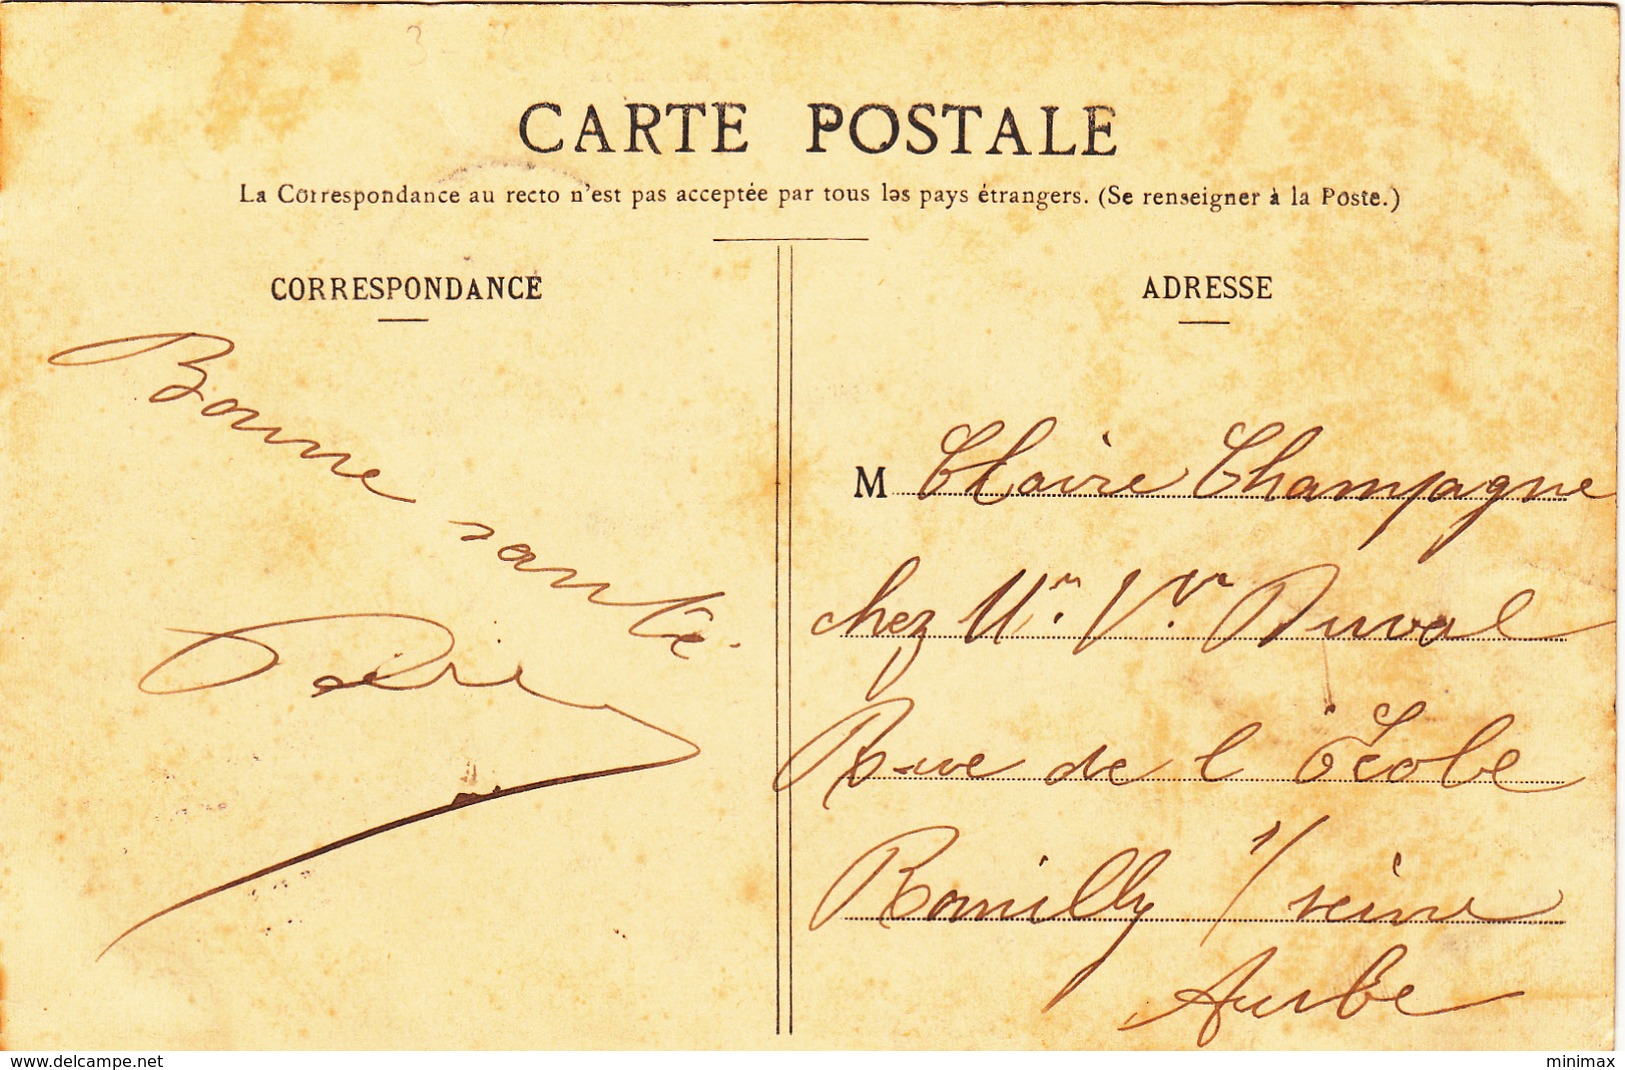 CARTE POSTALE
La Correspondance au recto n'est pas acceptée par tous les pays étrangers. (Se renseigner à la Poste.)
CORRESPONDANCE
Bonne santé
ADRESSE
M Claire Champagne
chez Mr. Vr. Duval
Rue de l'École
Romilly s/ seine
Aube
www.delcampe.net
minimax